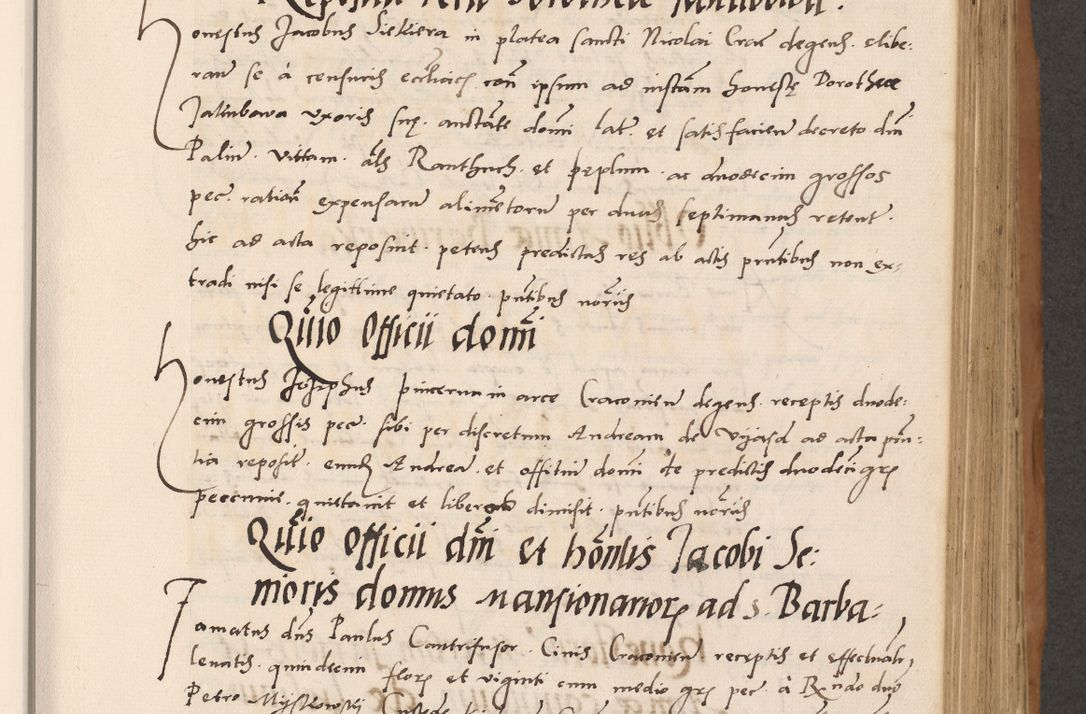 Honestus Jacobus Siekiera in platea sancti Nicolai Crac degens. elibe:
rari se à censuris ecclicis con ipsum ad instam honestę Dorothee
Jalubowa uxoris suę. auctate domi lat. et satisfacien decreto dni
Palin. vittam. als Ranthuch. et pęplum. ac duodecim grossos
pec. ration expensaru alimetoru per duas septimanas retent.
hic ad acta reposuit. petens predictas res ab actis pntibus non ex:
tradi nisi se legittime quietato. pntibus notriis
Quiio Officii domi
Honestus Josephus pincerna in arce Cracovien degens. receptis duode:
cim grossis pec. sibi per discretum Andream de Vyasd ad acta prn:
tia reposit. eund Andrea. et offitiu domi de predictis duodecim grs
pecunie. quittavit et liberos dimisit. pntibus notriis
Quiio Officii dni et honlis Jacobi Se:
nioris domus mansionarior ad s. Barba:
Famatus dns Paulus Cantrifusor. Civis Cracovien receptis et effectualr,
levatis. quindecim flor et viginti cum medio grs pec. à Rndo dno
Petro Myskowski